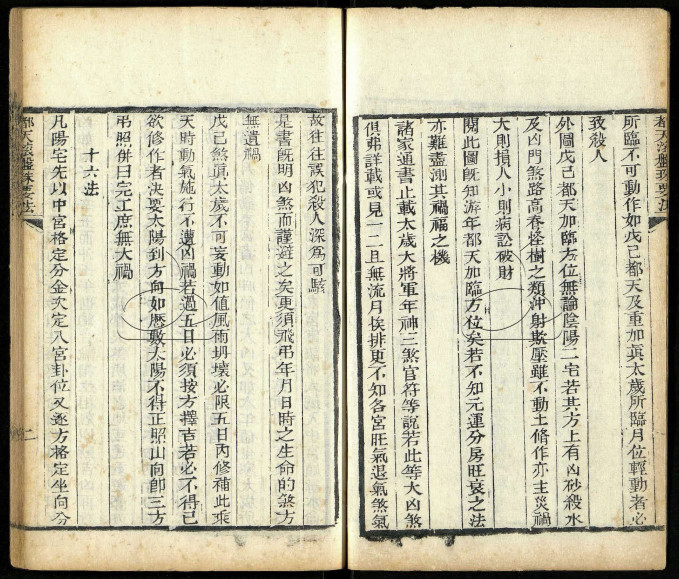 都天法盤珠要法
所臨不可動作如戊己都天及重加眞太歲所臨月位輕動者必
致殺人
外圖戊己都天加臨方位無論陰陽二宅若其方上有凶砂殺水
及凶門煞路高脊怪樹之類沖射欺壓雖不動土脩作亦主災禍
大則損人小則病訟破財
閱此圖旣知游年都天加臨方位矣若不知元運分房旺衰之法
亦難盡測其禍福之機
諸家通書止載太歲大將軍年神三煞官符等說若此等大凶煞
俱弗詳載或見一二且無流月挨排更不知各宮旺氣退氣煞氣
故往往誤犯殺人深爲可駭
是書旣明凶煞而謹避之矣更須飛弔年月日時之生命的煞方
無遺禍
戊己煞眞太歲不可妄動如値風雨坍壞必限五日內修補此乘
天時動氣施行不遭凶禍若過五日必須按方擇吉若必不得已
欲修作者決要太陽到方向如曆數太陽不得正照山向卽三方
弔照併日完工庶無大禍
十六法
凡陽宅先以中宮格定分金次定八宮卦位又逐方格定坐向分
都天法盤珠要法
二